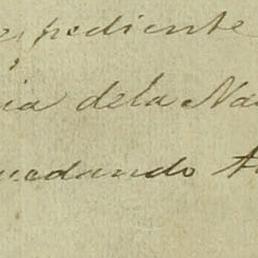 expediente
ia dela Na
uedando